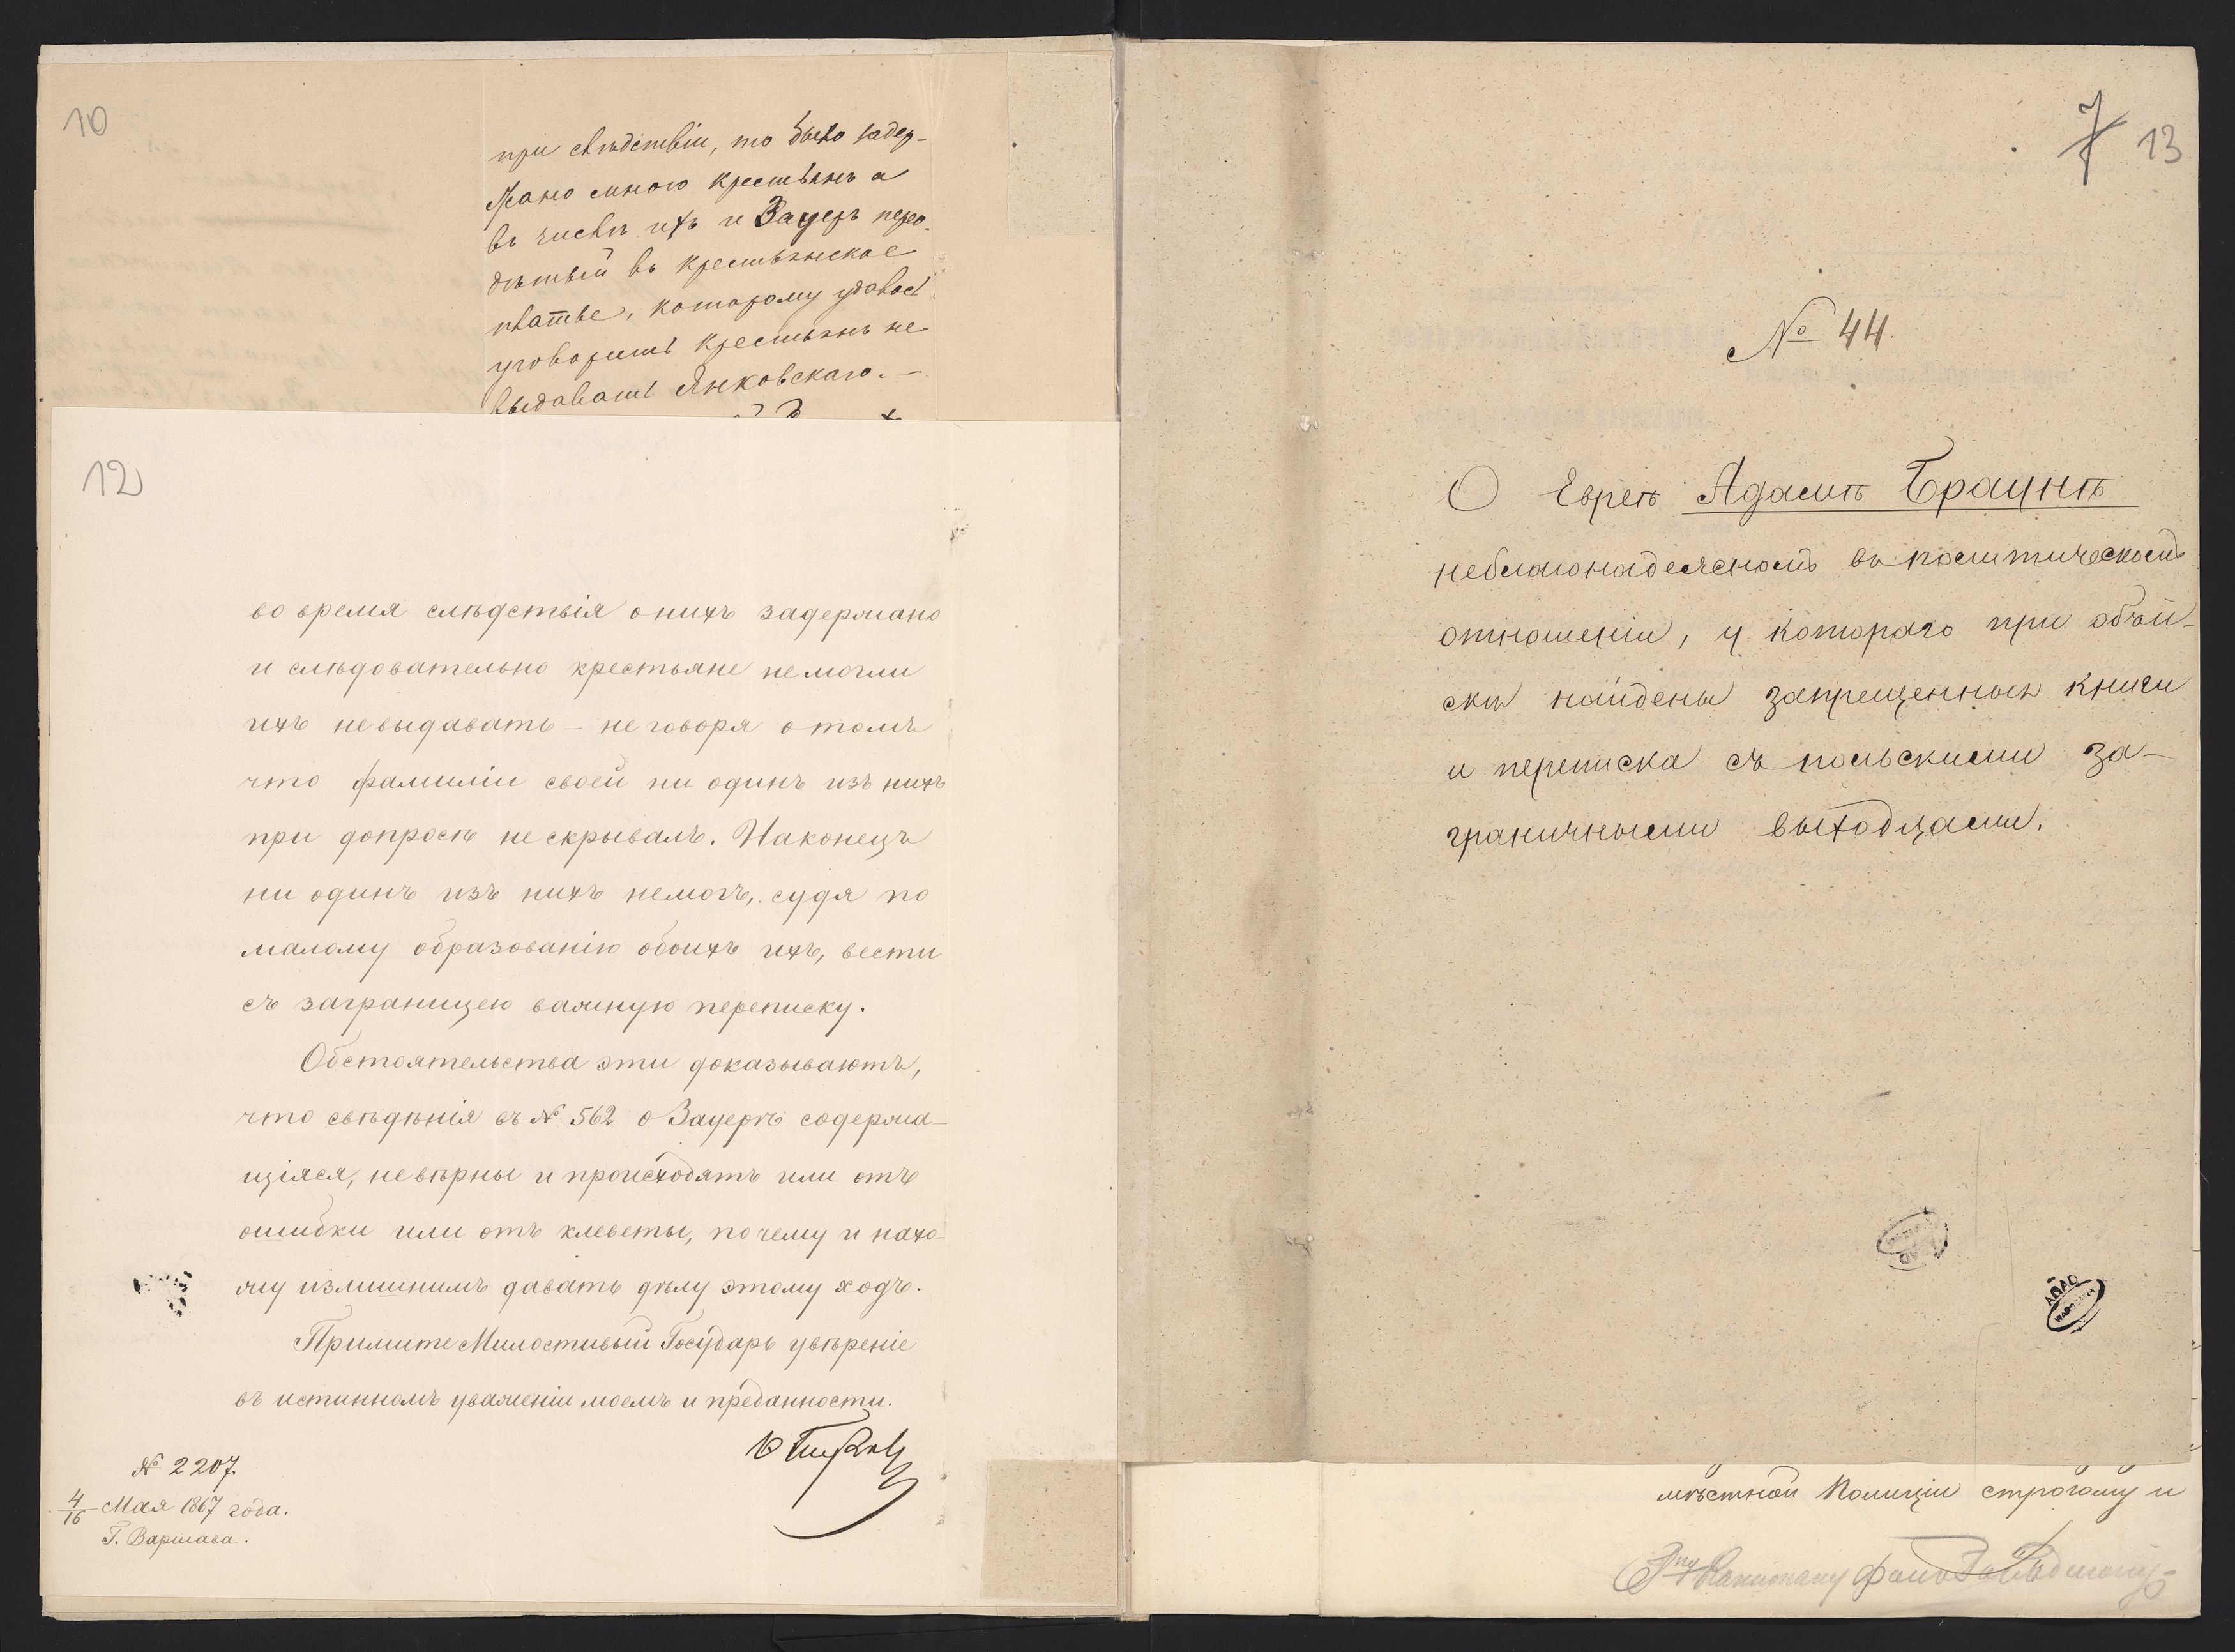 10
при слѣдствіи, то было задер-
жано много крестьянъ а
въ числѣ ихъ и Зауеръ перео-
дѣтый въ крестьянское
платье, которому удалось
уговорить крестьянъ не
выдавать Янковскаго. —
12
во время слѣдствія о нихъ задержано
и слѣдовательно крестьяне не могли
ихъ не выдавать — не говоря о томъ
что фамиліи своей ни одинъ изъ нихъ
при допросѣ не скрывалъ. Наконецъ
ни одинъ изъ нихъ не могъ, судя по
малому образованію обоихъ ихъ, вести
съ заграницею важную переписку.
Обстоятельства эти доказываютъ,
что свѣдѣнія въ № 562 о Зауерѣ содержа-
щіяся, невѣрны и происходятъ или отъ
ошибки или отъ клеветы, почему и нахо-
жу излишнимъ давать дѣлу этому ходъ.
Примите Милостивый Государь увѣреніе
въ истинномъ уваженіи моемъ и преданности.
№ 2207.
4/16 Мая 1867 года.
Г. Варшава.
7 13
№ 44.
О Евреѣ Адамѣ Браунѣ
неблагонадежномъ въ политическомъ
отношеніи, у котораго при обыи-
скѣ найдены запрещенныя книги
и переписка съ польскими за-
граничными выходцами.
AGAD
WARSZAWA
мѣстной Полиціи строгому и
Капитану фонъ